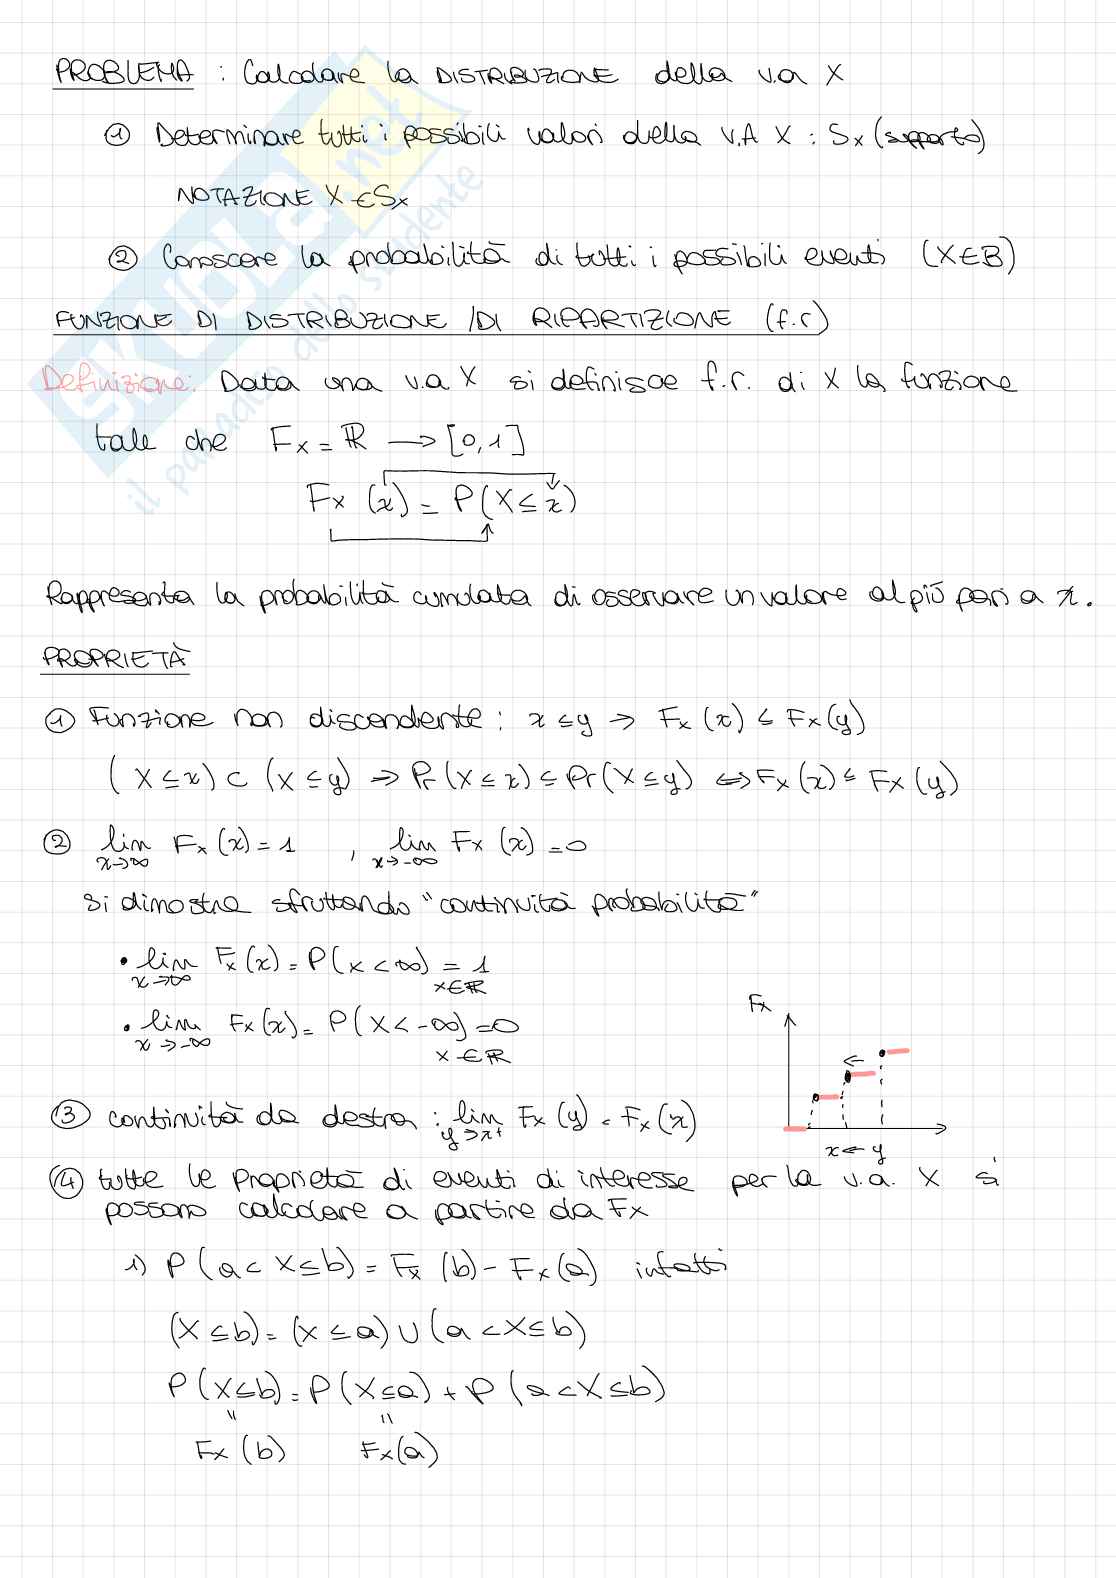 PROBLEMA : Calcolare la DISTRIBUZIONE della v.a X
① Determinare tutti i possibili valori della V.A X : Sx (supporto)
NOTAZIONE X ∈ Sx
② Conoscere la probabilità di tutti i possibili eventi (X∈B)
FUNZIONE DI DISTRIBUZIONE /DI RIPARTIZIONE (f.r)
Definizione: Data una v.a X si definisce f.r. di X la funzione
tale che Fx = ℝ → [0,1]
Fx (x) = P(X ≤ x)
Rappresenta la probabilità cumulata di osservare un valore al più pari a x.
PROPRIETÀ
① Funzione non discendente : x ≤ y → Fx (x) ≤ Fx (y)
(X ≤ x) ⊂ (X ≤ y) ⇒ Pr (X ≤ x) ≤ Pr (X ≤ y) ⇔ Fx (x) ≤ Fx (y)
② lim x→∞ Fx (x) = 1 , lim x→-∞ Fx (x) = 0
si dimostra sfruttando "continuità probabilità"
• lim x→∞ Fx (x) = P(x < ∞) = 1 x∈ℝ
• lim x→-∞ Fx (x) = P(X < -∞) = 0 x∈ℝ
Fx
③ continuità da destra : lim y→x+ Fx (y) = Fx (x)
x ← y
④ tutte le proprietà di eventi di interesse per la v.a. X si
possono calcolare a partire da Fx
1) P (a < X ≤ b) = Fx (b) - Fx (a) infatti
(X ≤ b) = (X ≤ a) ∪ (a < X ≤ b)
P (X ≤ b) = P (X ≤ a) + P (a < X ≤ b)
" "
Fx (b) Fx (a)
SKUOLA.net
il paradiso dello studente